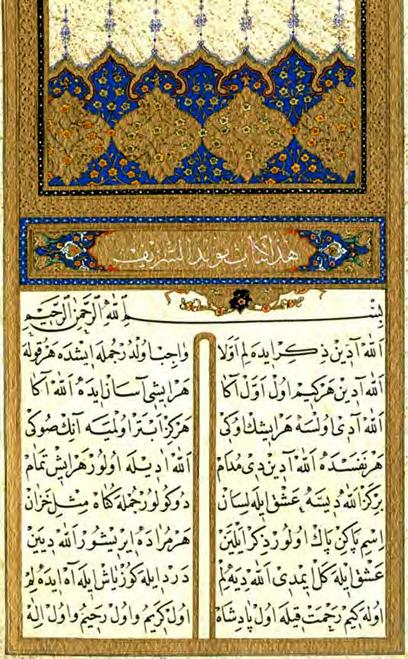 هذا كتاب مولد الشريف
بسم الله الرحمن الرحيم
الله آدين ذكر ايده لم اولا واجب اولدر جمله ايشده هر قوله
الله آدين هر كيم اول اول آكا هر ايشى آسان ايده الله آكا
الله آدى اولسه هر ايشك اوكى هركز ابتر اولميه آنك صوكى
هر نفسده الله آدين دى مدام الله اديله اولور هر ايش تمام
بر كز الله ديسه عشق ايله لسان دوكولور جمله كناه مثل خزان
اسم پاكن پاك اولور ذكر ايلين هر مراده ايريشور الله دين
عشق ايله كل ايمدى الله ديه لم درد ايله كوز ياش ايله آه ايده لم
اوله كيم رحمت قيله اول پادشاه اول كريم و اول رحيم و اول اله